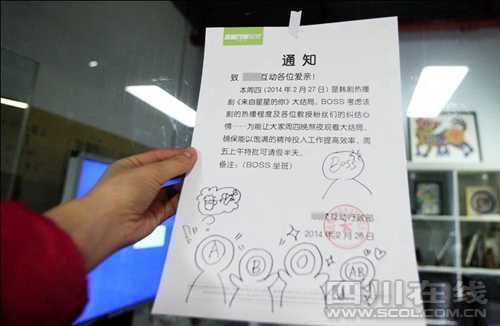 通 知
致 互动各位爱亲！
本周四（2014 年 2 月 27 日）是韩剧热播
剧《来自星星的你》大结局，BOSS 考虑该
剧的热播程度及各位教授粉丝们的纠结心
情……为能让大家周四晚熬夜观看大结局，
确保能以饱满的精神投入工作提高效率，周
五上午特批可请假半天。
备注：（BOSS 坐班）
BOSS
互动行政部
2014 年 2 月 26 日
A
B
O
AB
四川在线
WWW.SCOL.COM.CN